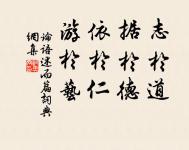 志於道
據於德
依於仁
游於藝
論語述而篇詞典
網集